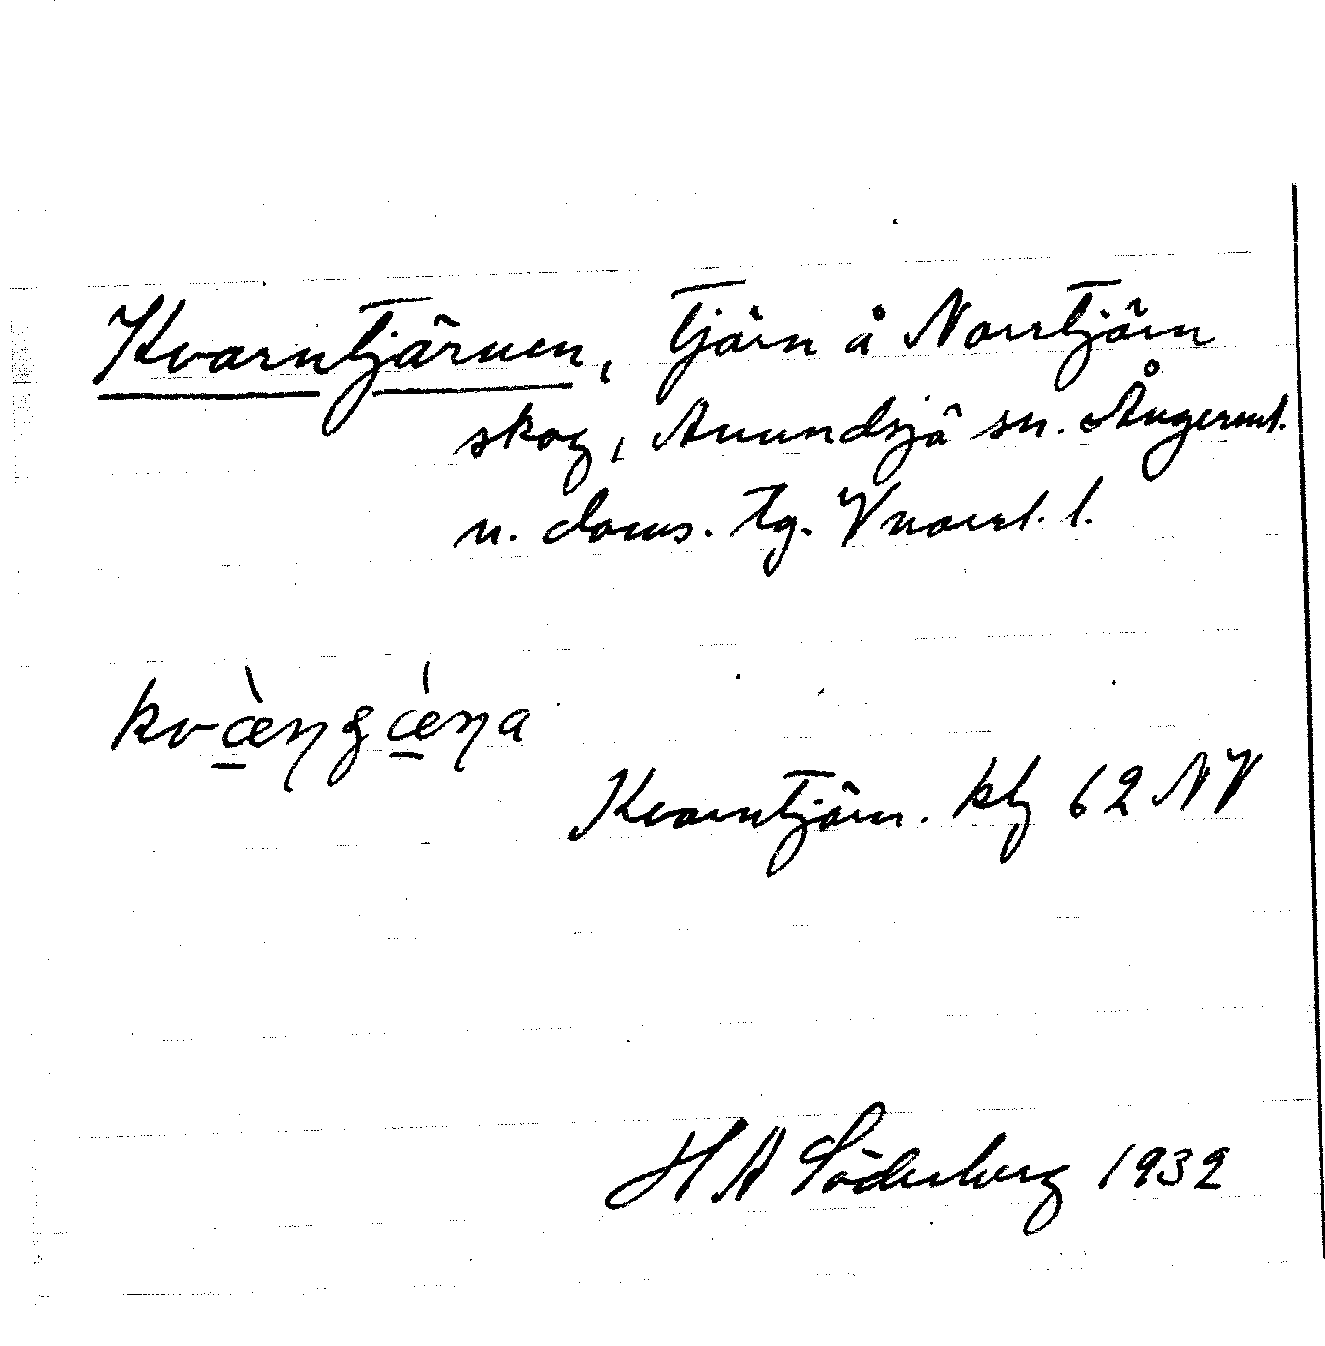 Kvarntjärnen, tjärn å Norrtjärn
skog, Anundsjö sn. Ångerml.
n. doms. tg. Vnorrl. l.
Kvarntjärn. kbl 62 NV
H A Söderberg 1932